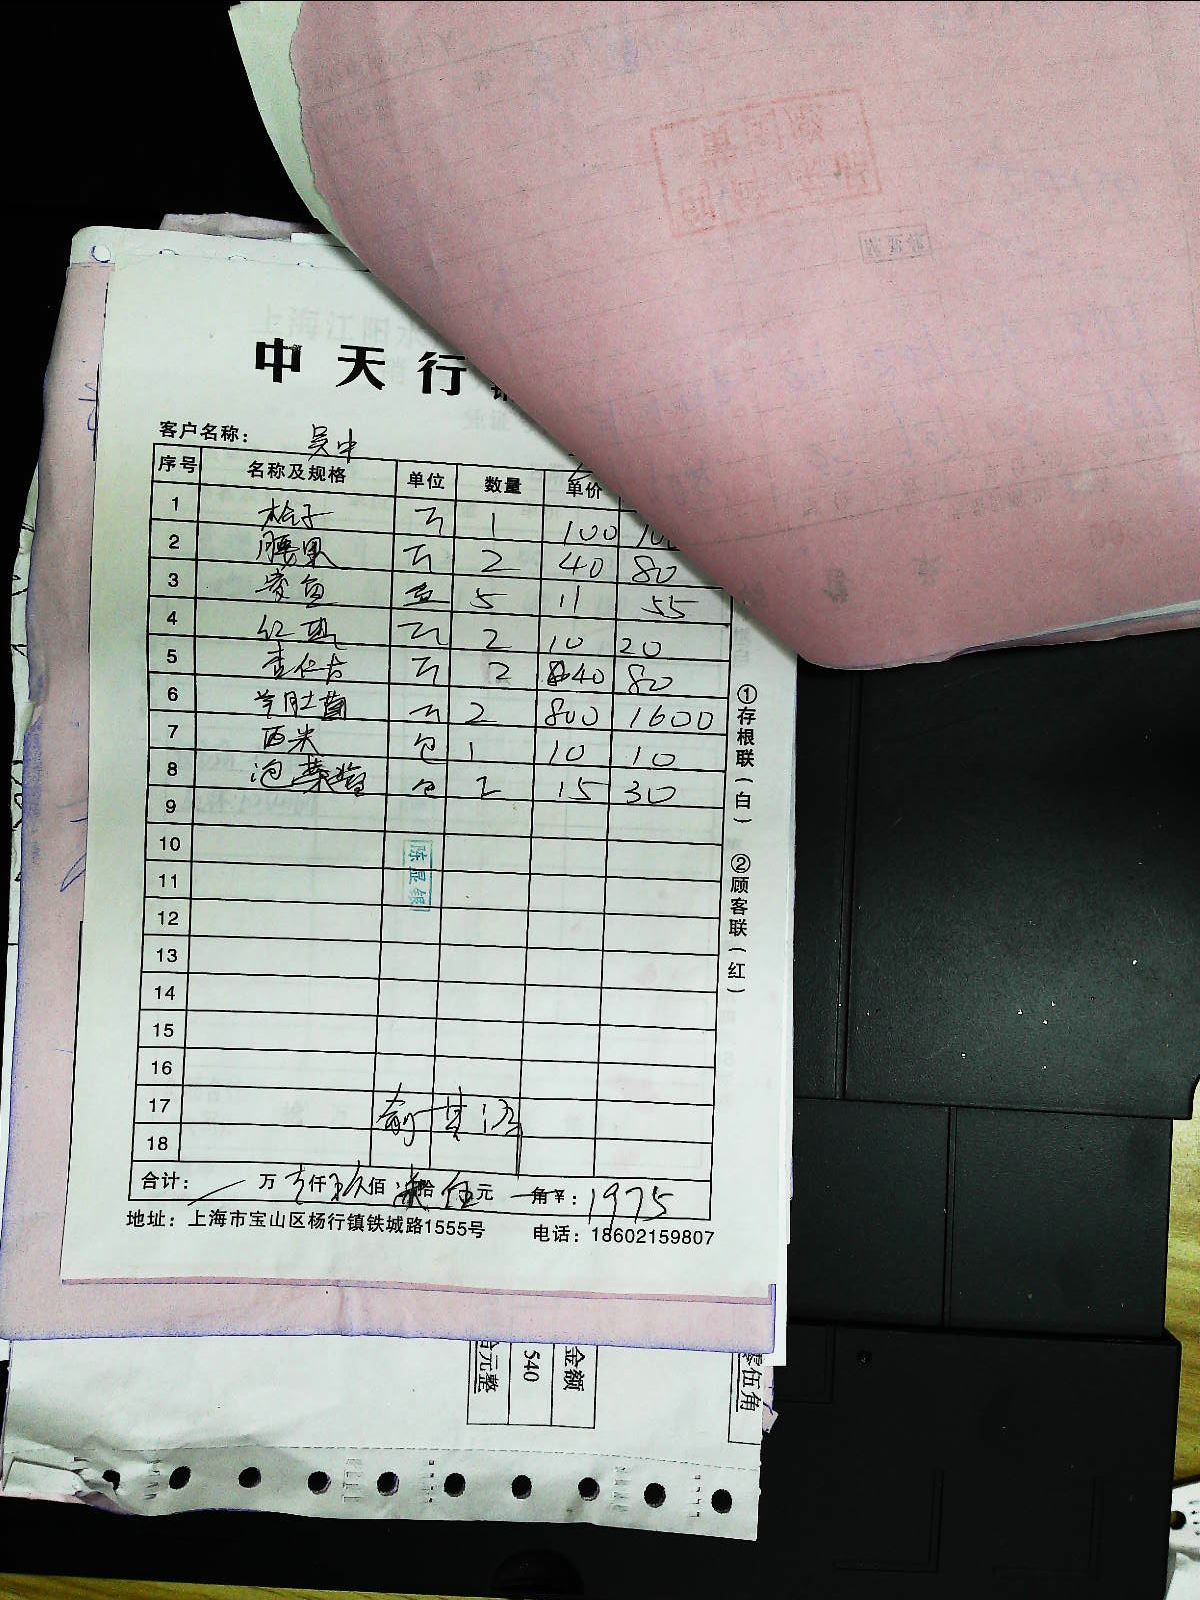 中天行
客户名称： 吴中
序号 名称及规格 单位 数量 单价
1 松子 斤 1 100
2 腰果 斤 2 40 80
3 鱼 5 11 55
4 红 斤 2 10 20
5 杏仁片 斤 2 40 80
6 羊肚菌 斤 2 800 1600
7 西米 包 1 10 10
8 泡菜 包 2 15 30
9
10
11
12
13
14
15
16
17
18
陈显银
俞
合计： 万 壹仟 玖佰 柒拾 伍元 角￥：1975
地址：上海市宝山区杨行镇铁城路1555号 电话：18602159807
①存根联（白）
②顾客联（红）
金额
540
拾元整
零伍角